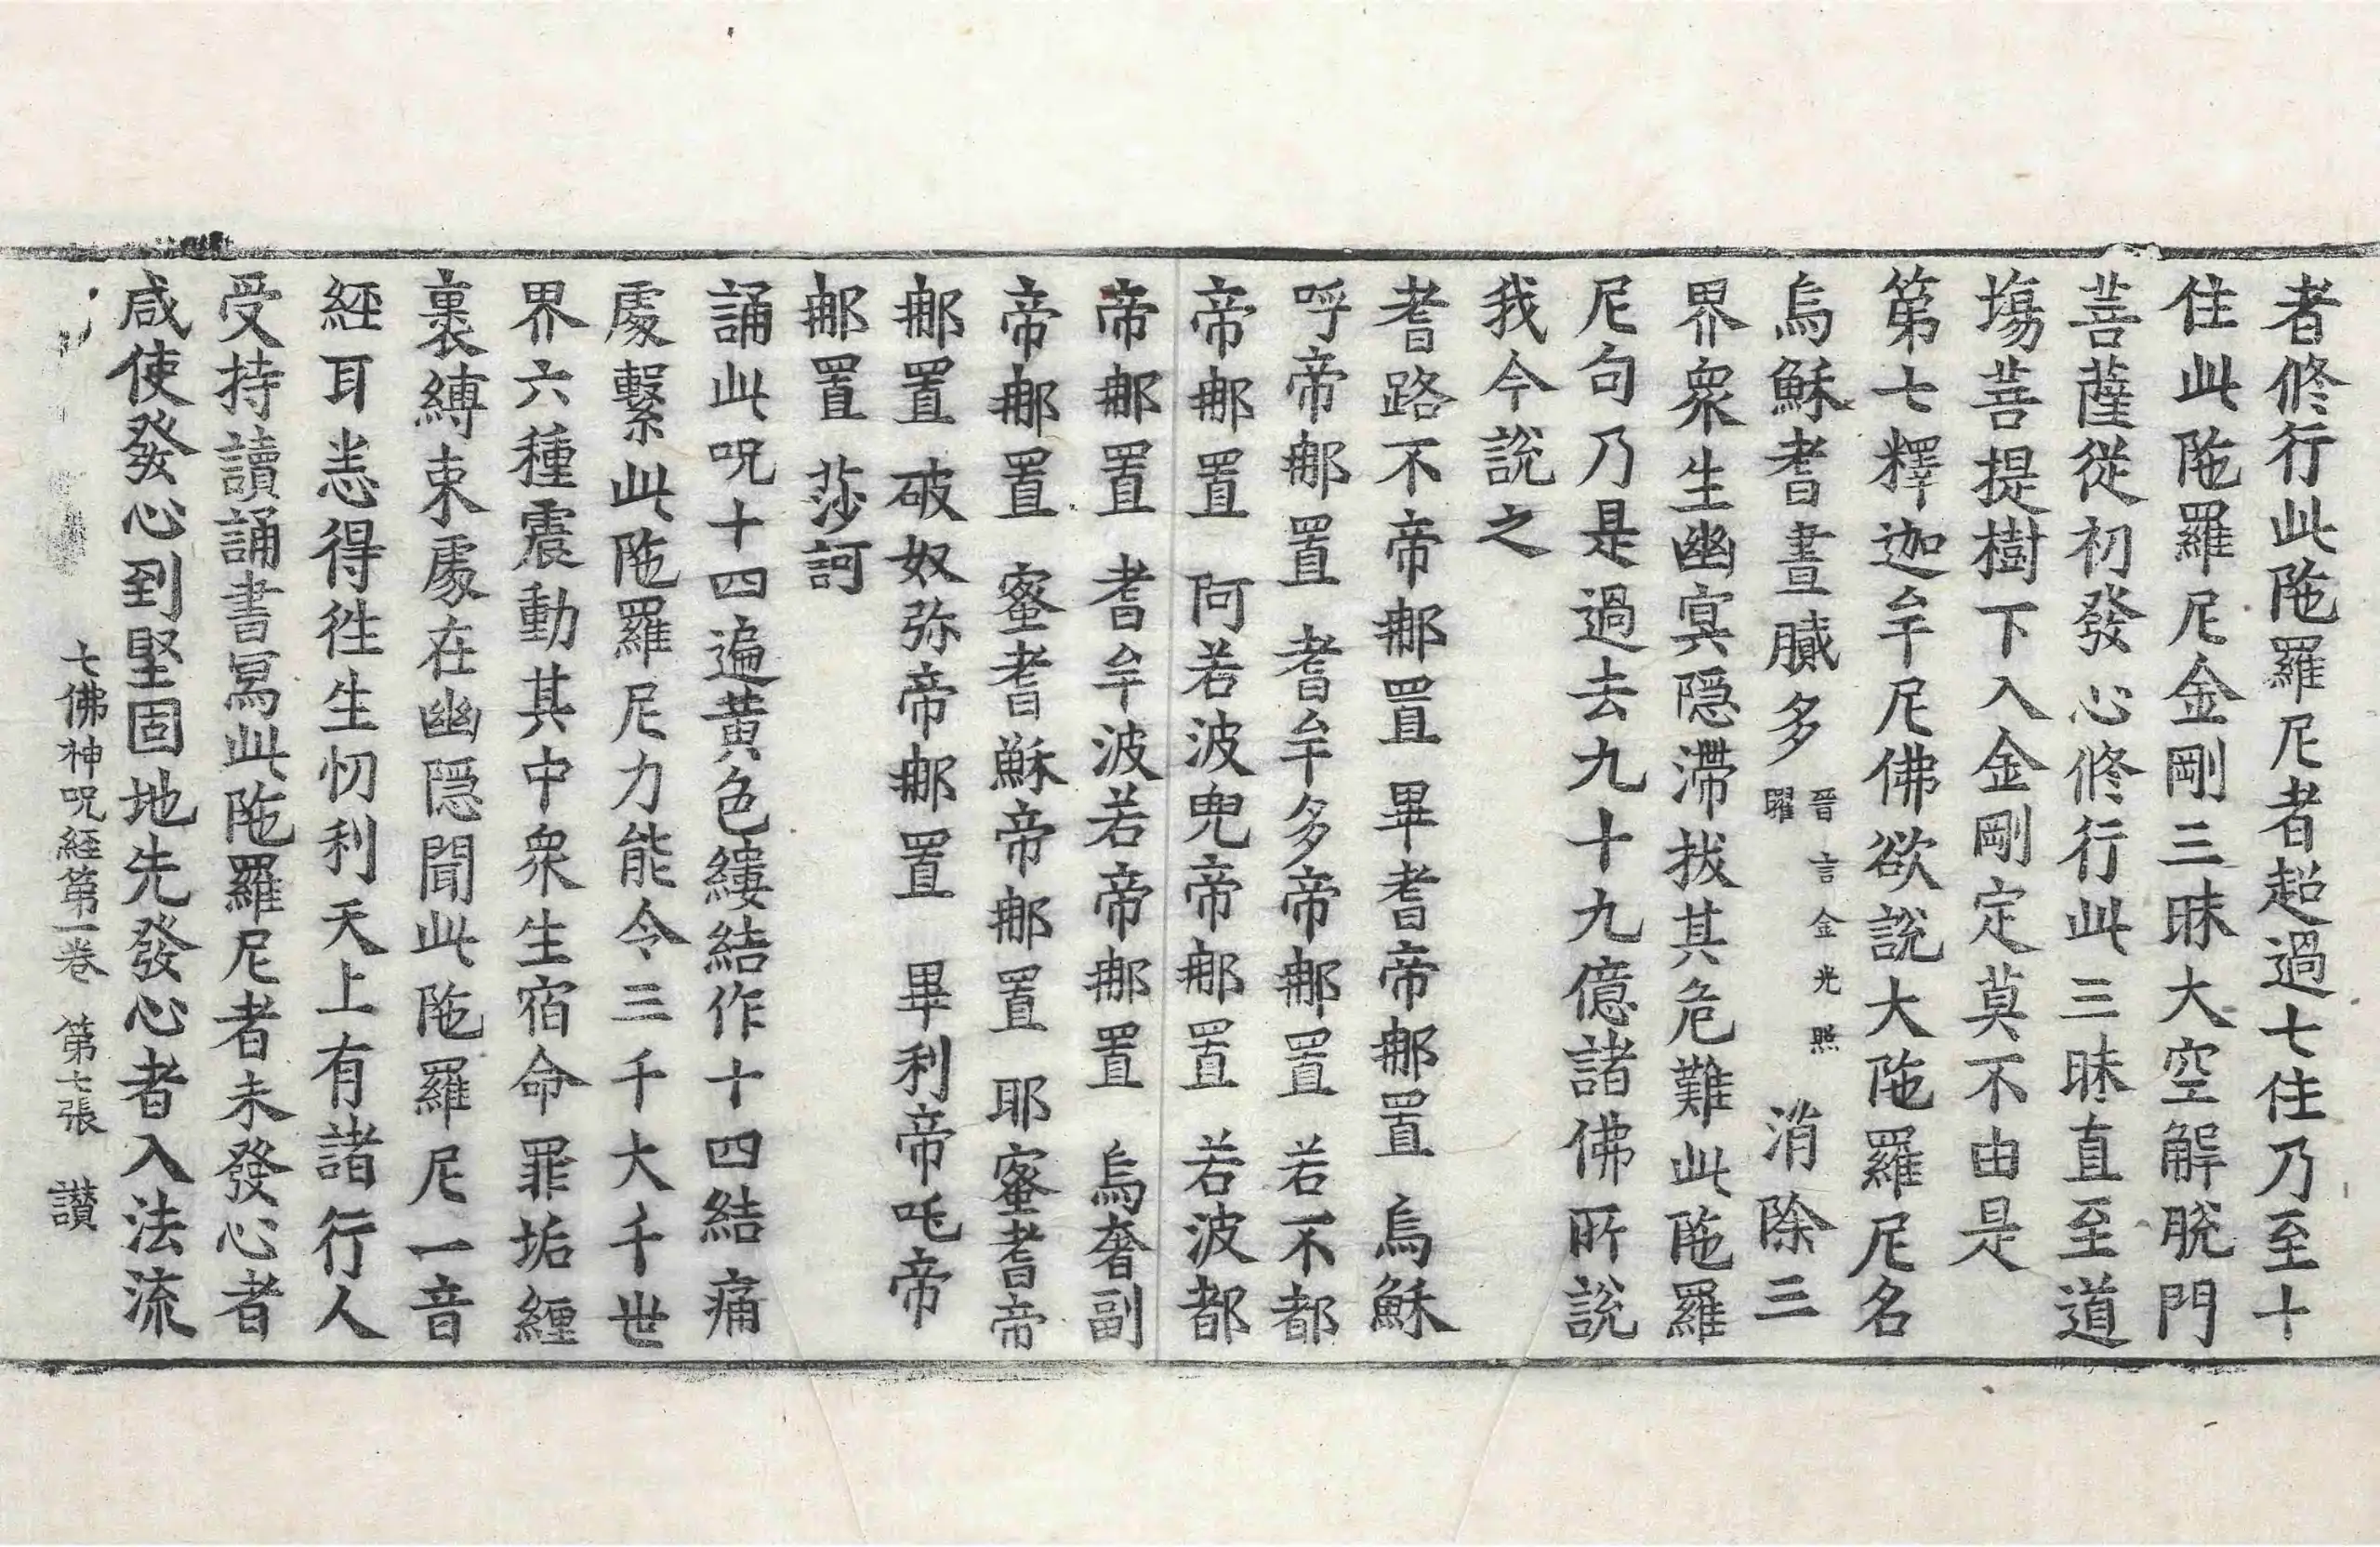 者修行此陁羅尼者超過七住乃至十
住此陁羅尼金剛三昧大空解脫門
菩薩從初發心修行此三昧直至道
塲菩提樹下入金剛定莫不由是
第七釋迦牟尼佛欲說大陁羅尼名
烏穌耆晝膩多 晉言金光照曜 消除三
界衆生幽冥隱滯拔其危難此陁羅
尼句乃是過去九十九億諸佛所說
我今說之
耆路不帝𨚗置 畢耆帝𨚗置 烏穌
呼帝𨚗置 耆牟多帝𨚗置 若不都
帝𨚗置 阿若波兜帝𨚗置 若波都
帝𨚗置 耆牟波若帝𨚗置 烏奢副
帝𨚗置 蜜耆穌帝𨚗置 耶蜜耆帝
𨚗置 破奴弥帝𨚗置 畢利帝吒帝
𨚗置 莎訶
誦此呪十四遍黃色縷結作十四結痛
處繫此陁羅尼力能令三千大千世
界六種震動其中衆生宿命罪垢纏
裹縛束處在幽隱聞此陁羅尼一音
經耳悉得徃生忉利天上有諸行人
受持讀誦書寫此陁羅尼者未發心者
咸使發心到堅固地先發心者入法流
七佛神呪經第一卷 第七張 讃